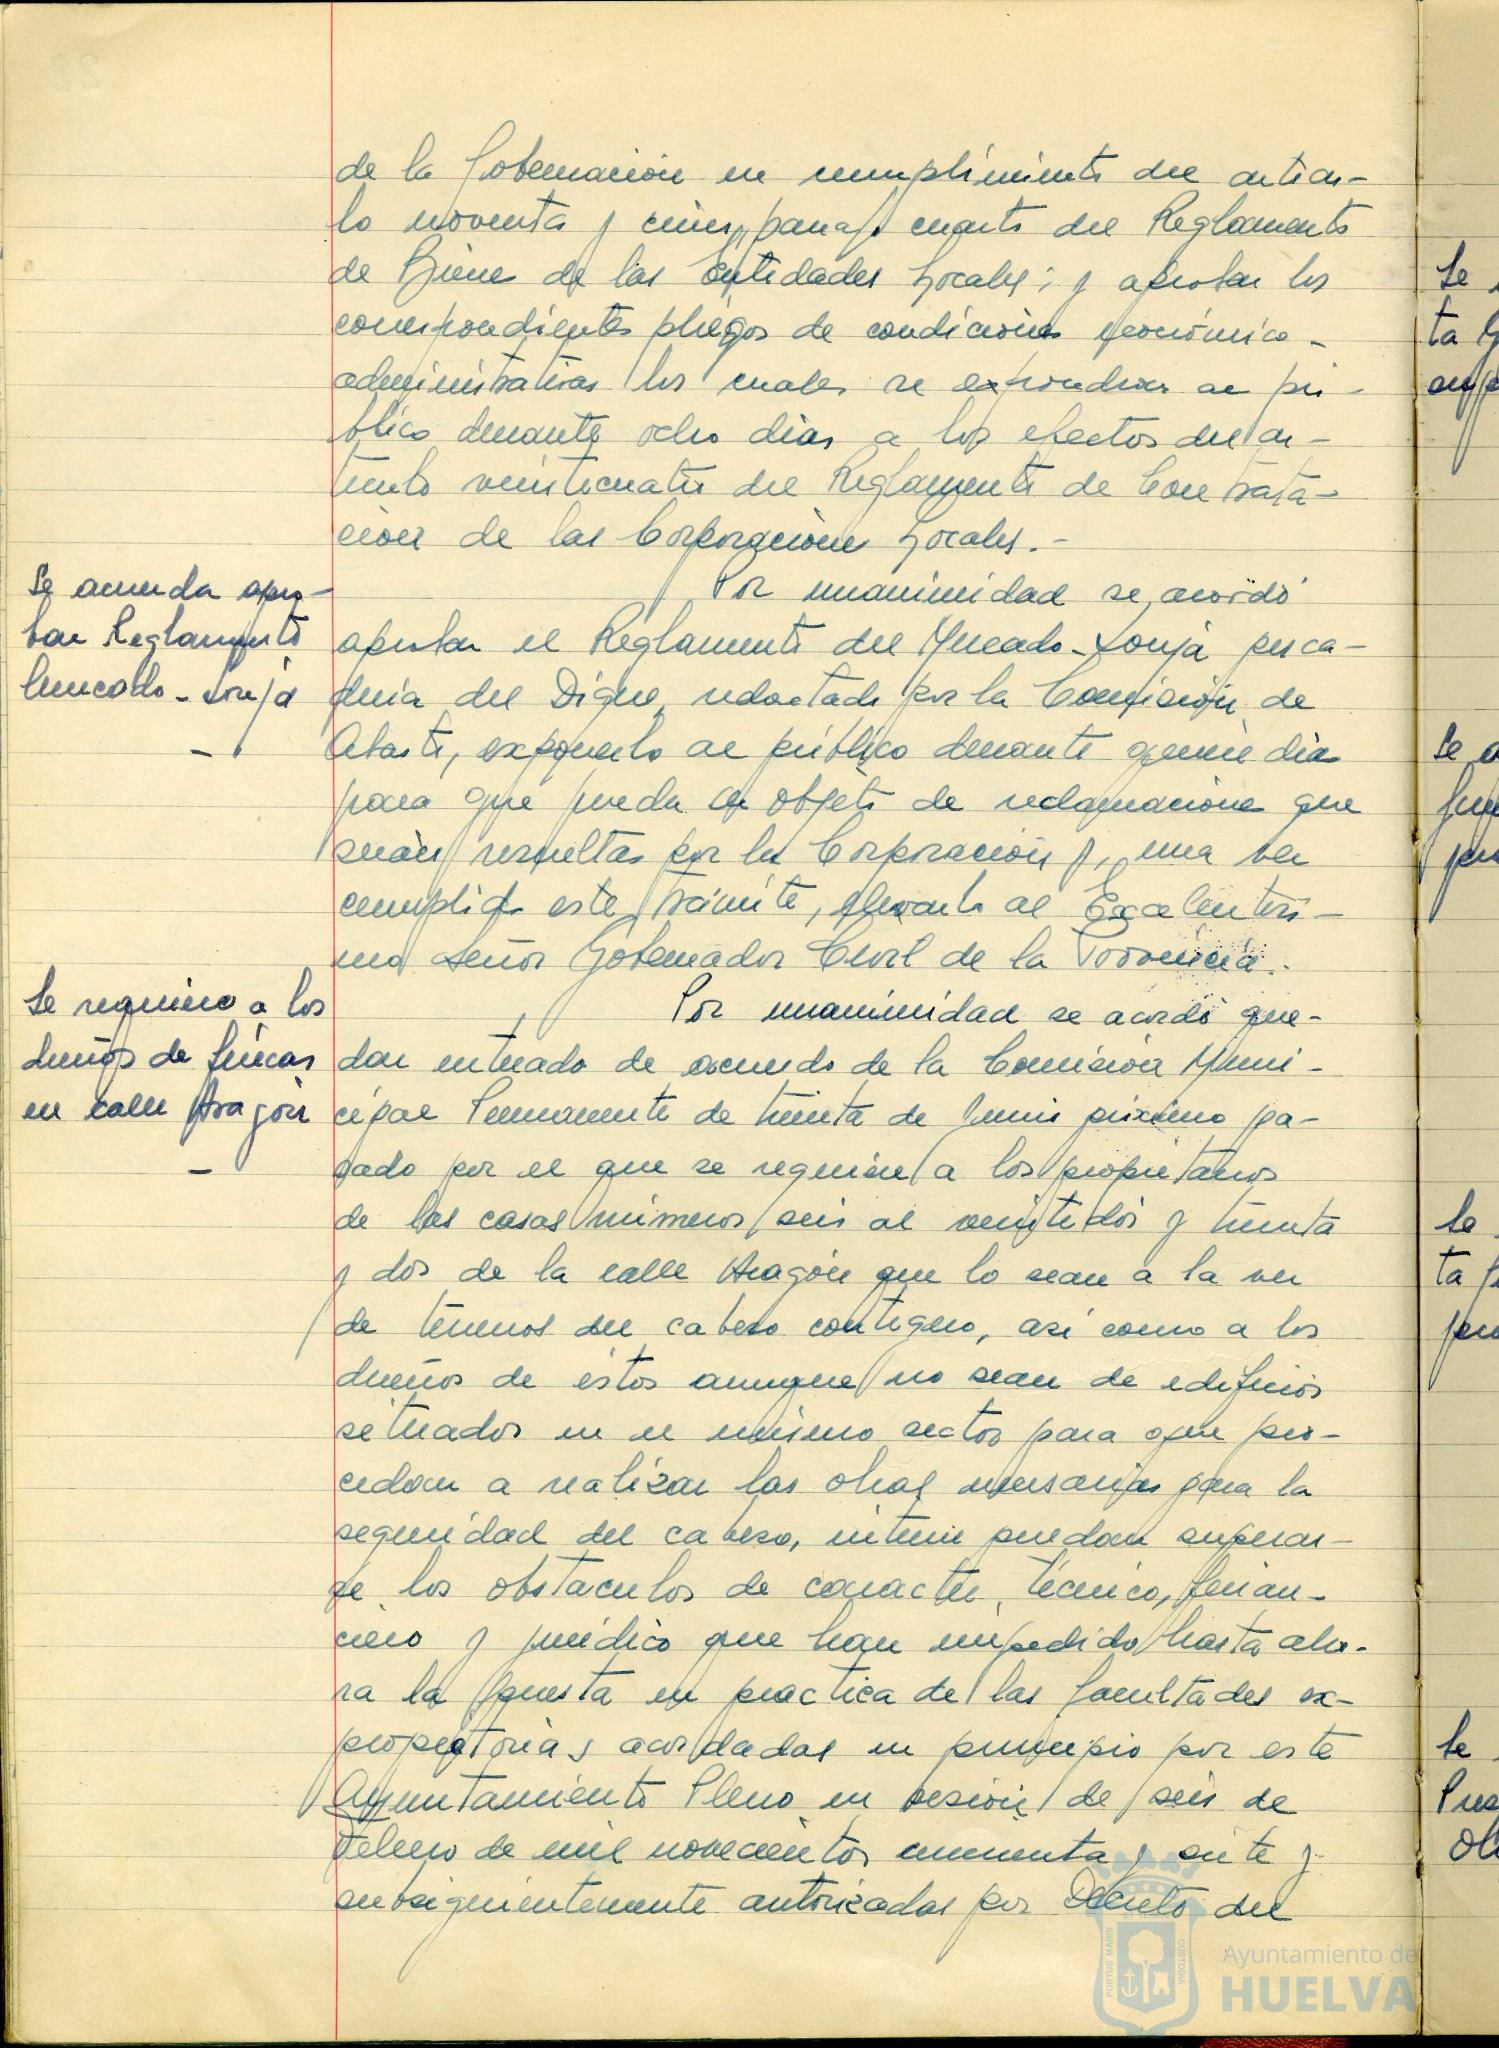 de la Gobernación en cumplimiento del artícu-
lo noventa y cinco, párrafo cuarto del Reglamento
de Bienes de las Entidades Locales; y aprobar los
correspondientes pliegos de condiciones económico-
administrativas los cuales se expondrán al pú-
blico durante ocho días a los efectos del ar-
tículo veinticuatro del Reglamento de Contrata-
ción de las Corporaciones Locales.-
Se acuerda apro-
bar Reglamento
Mercado-Lonja
-
Por unanimidad se acordó
aprobar el Reglamento del Mercado-Lonja pesca-
dería del Dique, redactado por la Comisión de
Abasto, exponerlo al público durante quince días
para que pueda ser objeto de reclamaciones que
serán resueltas por la Corporación y, una vez
cumplido este trámite, elevarlo al Excelentísi-
mo Señor Gobernador Civil de la Provincia.-
Se requiere a los
dueños de fincas
en calle Aragón
-
Por unanimidad se acordó que-
dar enterado de acuerdo de la Comisión Muni-
cipal Permanente de treinta de Junio próximo pa-
sado por el que se requiere a los propietarios
de las casas números seis al veintidós y treinta
y dos de la calle Aragón que lo sean a la vez
de terrenos del cabezo contiguo, así como a los
dueños de éstos aunque no sean de edificios
situados en el mismo sector para que pro-
cedan a realizar las obras necesarias para la
seguridad del cabezo, interin puedan superar-
se los obstáculos de caracter técnico, finan-
ciero y jurídico que han impedido hasta aho-
ra la puesta en practica de las facultades ex-
propiatorias acordadas en principio por este
Ayuntamiento Pleno en sesión de seis de
Febrero de mil novecientos cincuenta y siete y
subsiguientemente autorizadas por Decreto del
Ayuntamiento de
HUELVA
PORTUS MARIS
CUSTODIA
Se
ta
Se
ta
Se